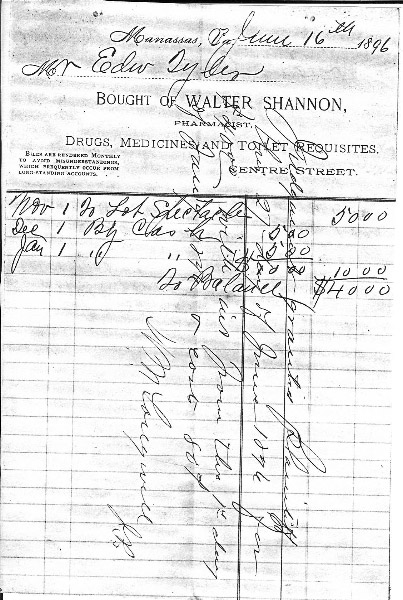 Manassas, Va, June 16th 1896
Mr Edw Tyler
BOUGHT OF WALTER SHANNON,
PHARMACIST,
DRUGS, MEDICINES AND TOILET REQUISITES,
BILLS ARE RENDERED MONTHLY
TO AVOID MISUNDERSTANDINGS,
WHICH FREQUENTLY OCCUR FROM
LONG-STANDING ACCOUNTS.
CENTRE STREET.
Nov 1 To Lot Spectacles 50 00
Dec 1 By Cash 5 00
Jan 1 " " 5 00 10 00
To Balance $40 00
Judgment granted Plaintiff
17 June 1896 for
with int from the 1st day
of Jan & cost 80